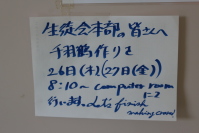 生徒会本部の皆さんへ
千羽鶴作りを
26日(木)(27日(金))
8:10~ computer room
にて
行います。Let's finish
making cranes!